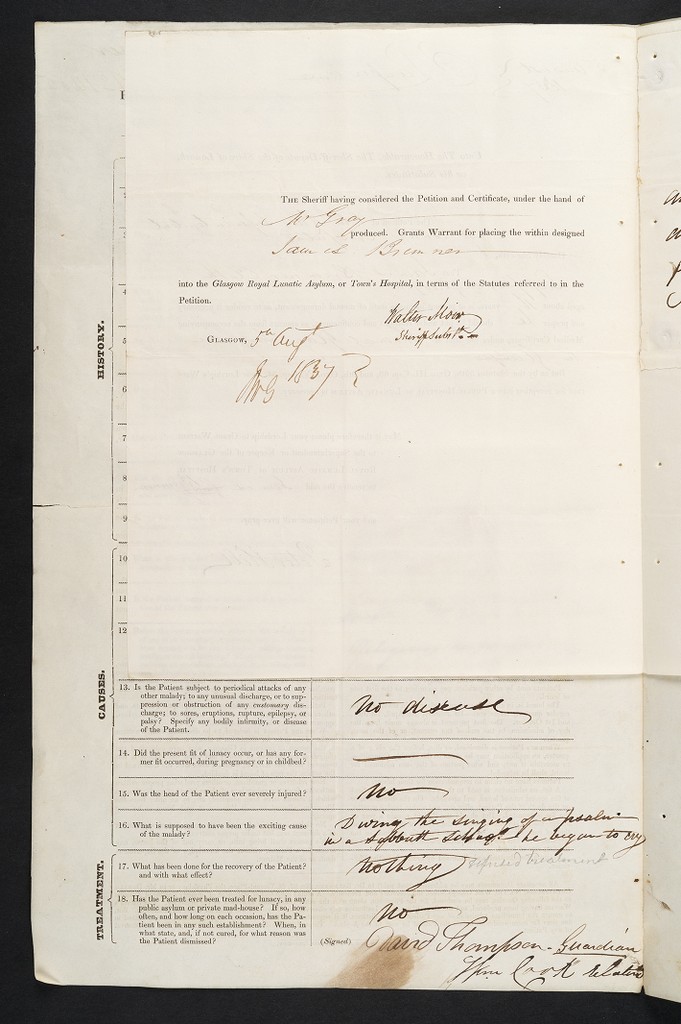 THE Sheriff having considered the Petition and Certificate, under the hand of
Mr Gray
produced. Grants Warrant for placing the within designed
James Bremner
into the Glasgow Royal Lunatic Asylum, or Town's Hospital, in terms of the Statutes referred to in the
Petition.
Walter Moir
Sheriff Subst
GLASGOW, 5th Augt
1837
HISTORY.
4
5
6
7
8
9
10
11
12
CAUSES.
13. Is the Patient subject to periodical attacks of any
other malady; to any unusual discharge, or to sup-
pression or obstruction of any customary dis-
charge; to sores, eruptions, rupture, epilepsy, or
palsy? Specify any bodily infirmity, or disease
of the Patient.
no disease
14. Did the present fit of lunacy occur, or has any for-
mer fit occurred, during pregnancy or in childbed?
15. Was the head of the Patient ever severely injured?
no
16. What is supposed to have been the exciting cause
of the malady?
During the singing of a psalm
in a Sabbath School he began to cry
TREATMENT.
17. What has been done for the recovery of the Patient?
and with what effect?
nothing refused treatment
18. Has the Patient ever been treated for lunacy, in any
public asylum or private mad-house? If so, how
often, and how long on each occasion, has the Pa-
tient been in any such establishment? When, in
what state, and, if not cured, for what reason was
the Patient dismissed?
no
(Signed) David Thompson - Guardian
Wm Cook relation